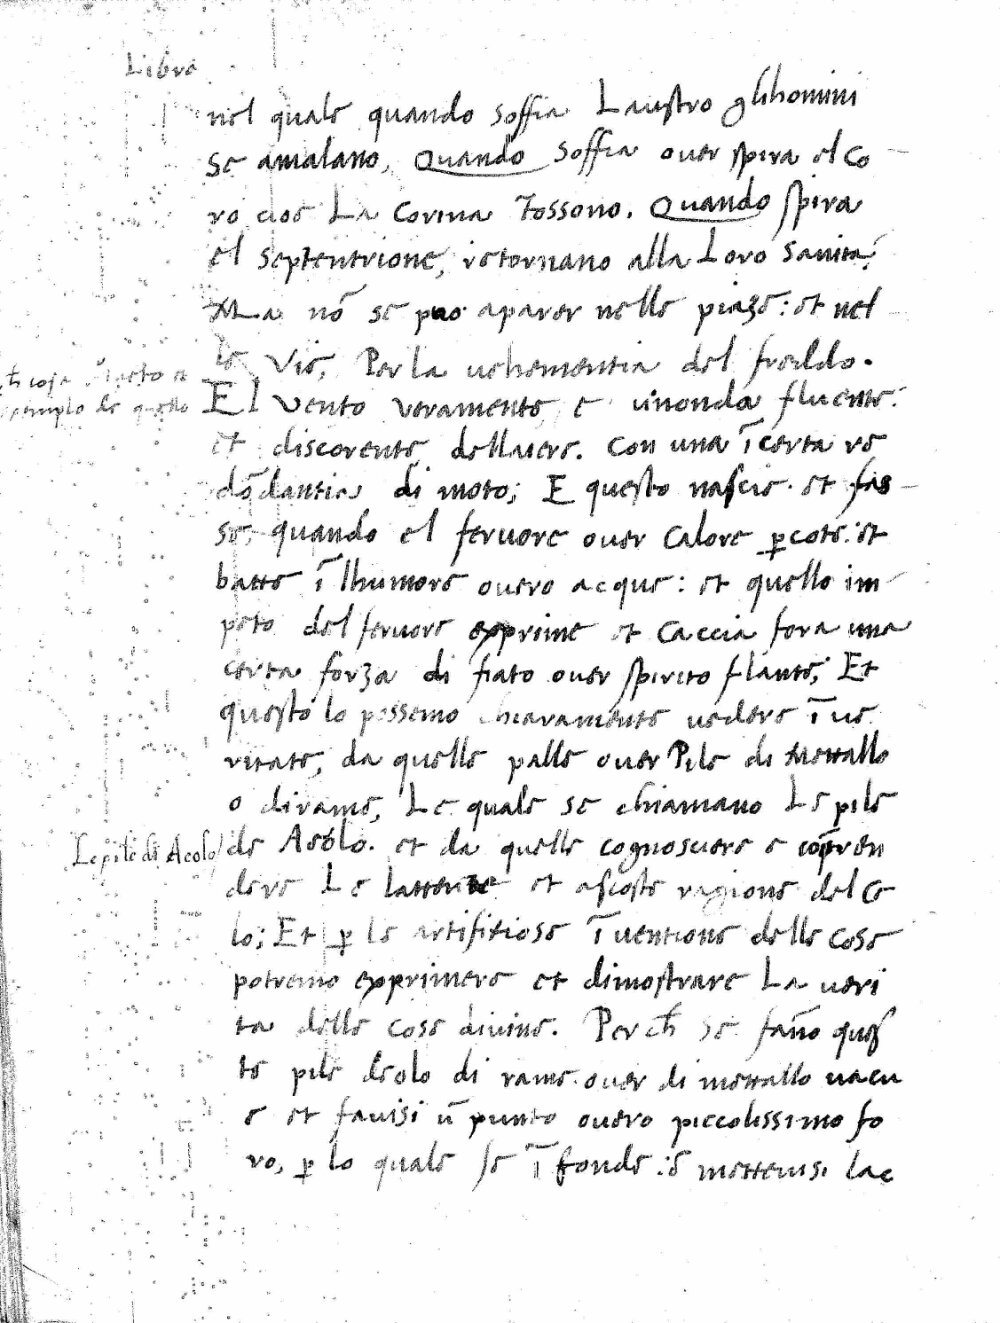 Libro
nel quale quando soffia Laustro glihomini
se amalano, Quando soffia ouer spira el Co
ro cioe La Corina Tossono. Quando spira
el septentrione, retornano alla Loro sanita.
Ma nō se puo aparer nelle piaze: et nel
le vie, Per la uehementia del freddo.
exemplo de quello
El vento veramente e unonda fluente:
et discorente dellaiere. con una īcerta re
dōdantia di moto; E questo nascie. et fas
se, quando el feruore ouer calore p̱cote: et
batte ī lhumore ouero acque: et quello im
peto del feruore exprime et caccia fora una
certa forza di fiato ouer spirito flante; Et
questo lo possemo chiaramente uedere ī ue
ritate, da quelle palle ouer Pile di mettallo
o dirame, Le quale se chiamano Le pile
Le pile di Aeolo
de Aeolo. et da quelle cognoscere e cōp̄ren
dere Le lattente et ascoste ragione del Ce
lo; Et p̱ le artifitiose īuentione delle cose
potremo exprimere et dimostrare La ueri
ta delle cose diuine. Perch̄ se fāno ques
te pile deolo di rame. ouer di mettallo uacu
e et fauisi ū punto ouero piccolissimo fo
ro, p̱ lo quale se ī fonde: e metteuisi lac